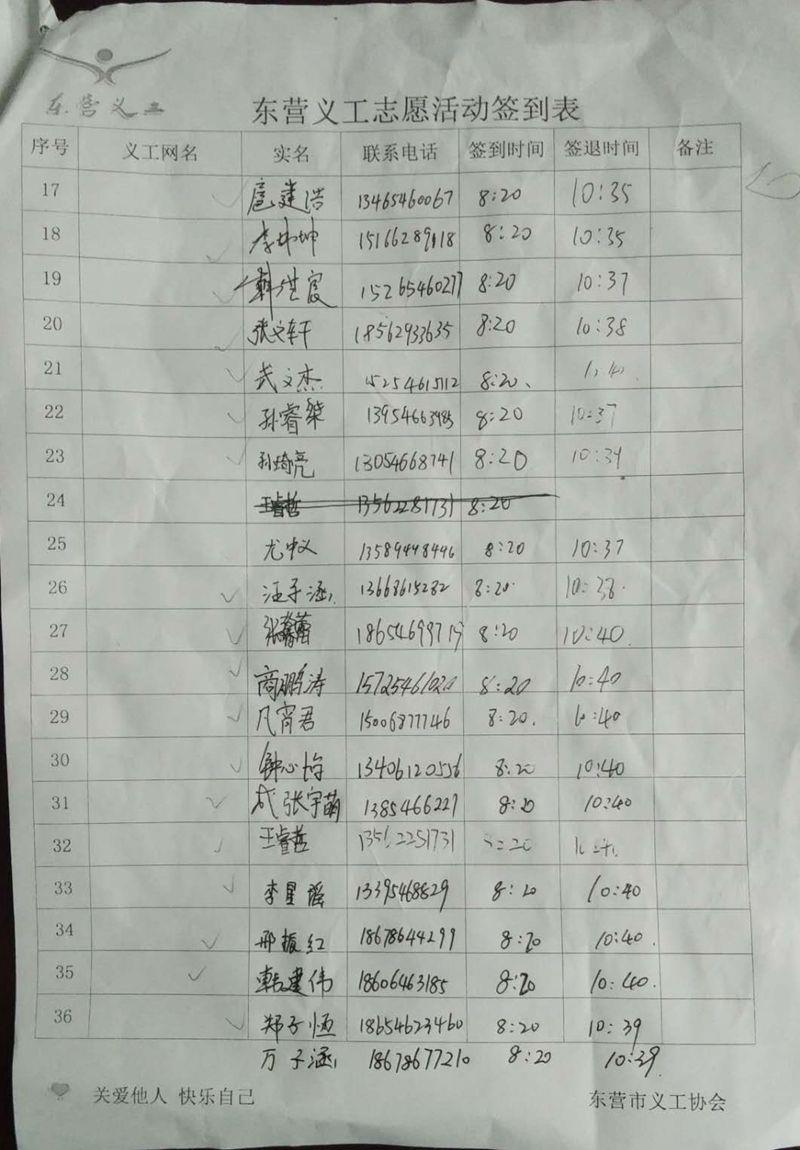 东营义工
东营义工志愿活动签到表
序号 义工网名 实名 联系电话 签到时间 签退时间 备注
17 扈建浩 13465460067 8:20 10:35
18 李坤坤 15166289118 8:20 10:35
19 韩世宸 15265460277 8:20 10:37
20 张文轩 18562933635 8:20 10:38
21 武文杰 15254615112 8:20、
22 孙睿桀 13954663985 8:20 10:37
23 孙琦亮 13054668741 8:20 10:39
24 王睿哲 13562281731 8:20
25 尤中义 13589448446 8:20 10:37
26 汪子涵 13668615282 8:20 10:38.
27 张 18654699719 8:20 10:40
28 商鹏涛 15725461020 8:20 10:40
29 凡宵君 15006877746 8:20. 10:40
30 钟心怡 13406120556 8:20 10:40
31 成张宇萌 1385466227 8:20 10:40
32 王睿哲 13562251731 8:20
33 李星瑶 13395468829 8:20 10:40
34 邢振红 18678644299 8:20 10:40.
35 韩建伟 18606463185 8:20 10:40.
36 郑子恒 18654623460 8:20 10:39
万子涵 18678677210 8:20 10:39.
关爱他人 快乐自己 东营市义工协会